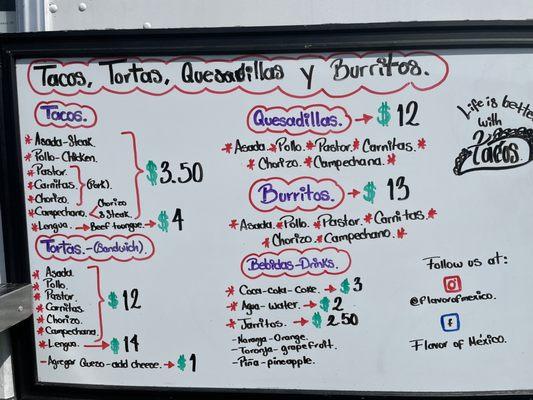 Tacos, Tortas, Quesadillas y Burritos.
Tacos.
* Asada-Steak.
* Pollo-Chicken.
* Pastor.
* Carnitas. (Pork).
* Chorizo.
* Campechano. Chorizo & Steak.
$3.50
* Lengua. → Beef tongue. → $4
Tortas.-(Sandwich).
* Asada.
* Pollo.
* Pastor.
* Carnitas.
* Chorizo.
* Campechana.
$12
* Lengua. → $14
- Agregar Queso-add cheese. → $1
Quesadillas. → $12
* Asada. * Pollo. * Pastor. * Carnitas. *
* Chorizo. * Campechana. *
Burritos. → $13
* Asada. * Pollo. * Pastor. * Carnitas. *
* Chorizo. * Campechano. *
Bebidas-Drinks.
* Coca-Cola-Coke. → $3
* Agua-Water. → $2
* Jarritos. → $2.50
- Naranja-Orange.
- Toronja-grapefruit.
- Piña-pineapple.
Life is better
with
Tacos.
Follow us at:
@flavorofmexico.
f
Flavor of México.